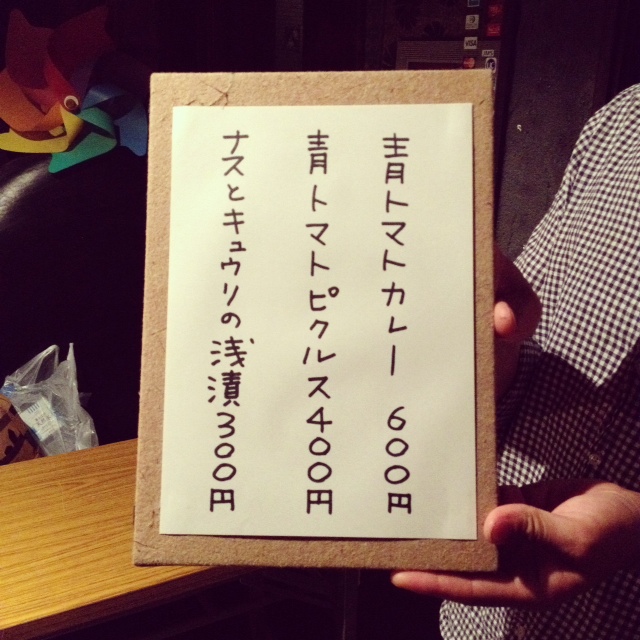 青トマトカレー 600円
青トマトピクルス400円
ナスとキュウリの浅漬300円